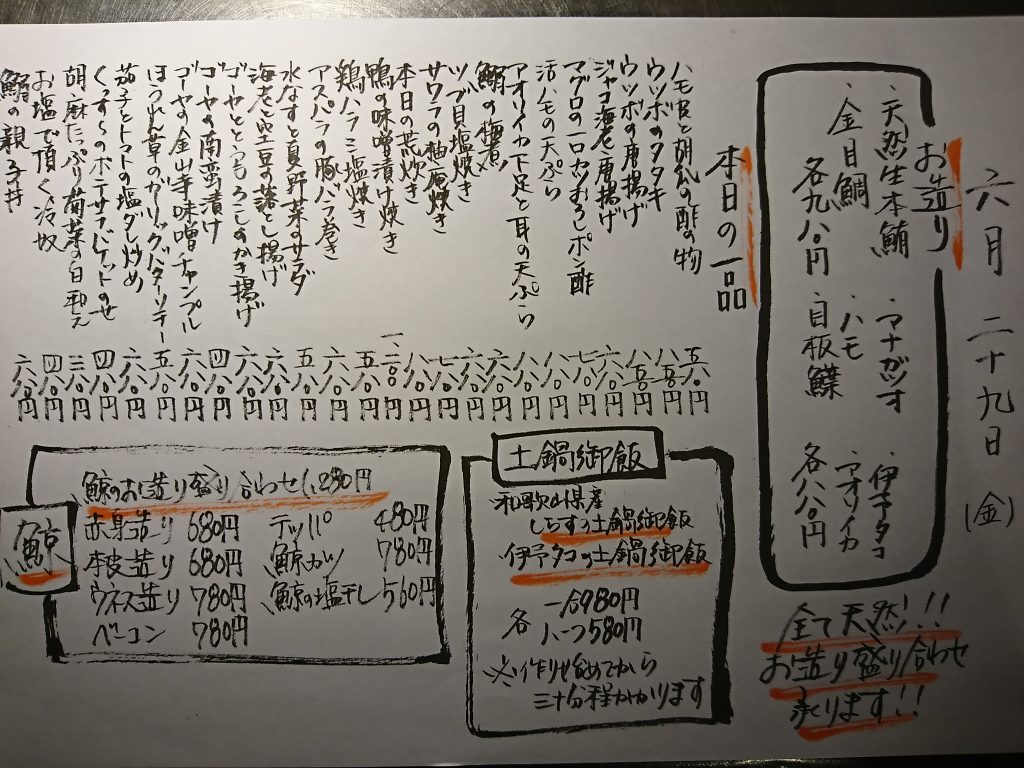 六月二十九日(金)
お造り
・天然生本鮪 マナガツオ ・伊予タコ
・金目鯛 ・ハモ ・アオリイカ
各九八〇円 目板鰈 各八八〇円
全て天然!!
お造り盛り合わせ
承ります!!
本日の一品
ハモ皮と胡瓜の酢の物 五八〇円
ウツボのタタキ 八八〇円
ウツボの唐揚げ 八八〇円
ジャコ海老唐揚げ 六八〇円
マグロの一口カツおろしポン酢 七八〇円
活ハモの天ぷら 八八〇円
アオリイカ下足と耳の天ぷら 八八〇円
鰯の梅煮 六八〇円
ツブ貝塩焼き 六八〇円
サワラの柚庵焼き 七八〇円
本日の荒炊き 八八〇円
鴨の味噌漬け焼き 一、二〇〇円
鶏ハラミ塩焼き 五八〇円
アスパラの豚バラ巻き 六八〇円
水なすと夏野菜のサラダ 五八〇円
海老と空豆の落とし揚げ 六八〇円
ゴーヤととうもろこしのかき揚げ 六八〇円
ゴーヤの南蛮漬け 四八〇円
ゴーヤの金山寺味噌チャンプル 六八〇円
ほうれん草のガーリックバターソテー 五八〇円
茄子とトマトの塩ダレ炒め 六八〇円
くっすらのポテサラバケットのせ 四八〇円
胡麻たっぷり菊菜の白和え 三八〇円
お塩で頂く冷奴 四八〇円
鰯の親子丼 六八〇円
土鍋御飯
和歌山県産
しらすの土鍋御飯
伊予タコの土鍋御飯
各 一合980円
ハーフ580円
※作り始めてから
三十分程かかります
鯨
鯨のお造り盛り合わせ1,280円
赤身造り 680円 テッパ 480円
本皮造り 680円 鯨カツ 780円
ウネス造り 780円 鯨の塩干し 560円
ベーコン 780円